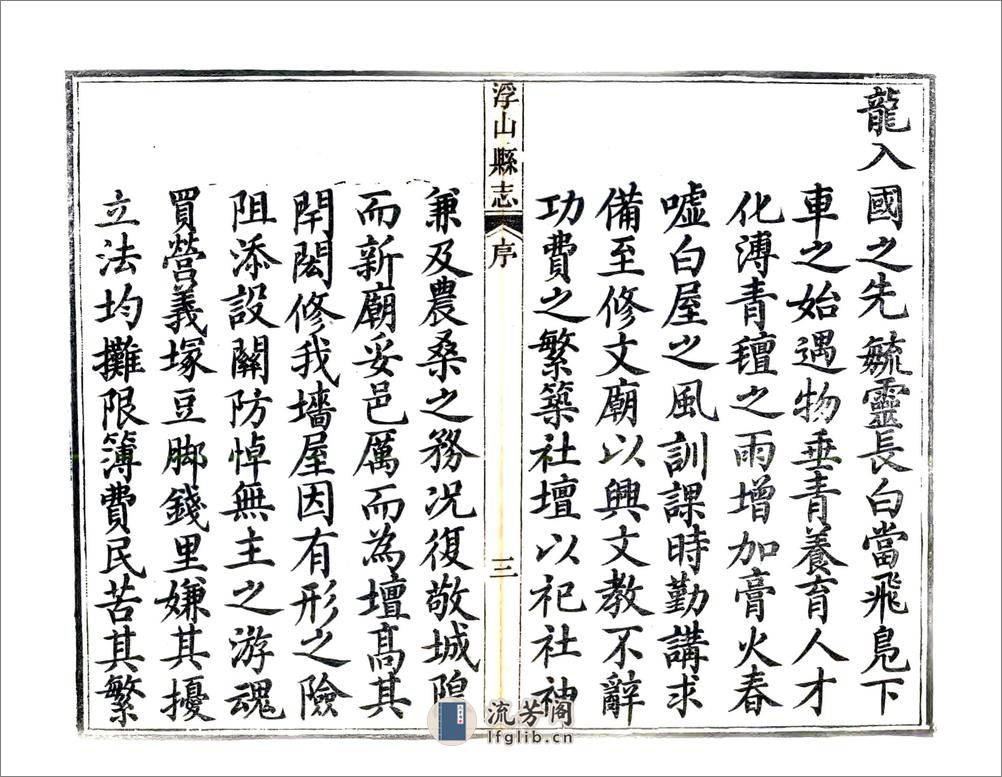 龍入國之先毓靈長白當飛鳧下
車之始遇物垂青養育人才
化溥青氊之雨增加膏火春
嘘白屋之風訓課時勤講求
備至修文廟以興文教不辭
功費之繁築社壇以祀社神
浮山縣志 序 三
兼及農桑之務况復敬城隍
而新廟妥邑厲而為壇髙其
閈閎修我墻屋因有形之險
阻添設關防悼無主之游魂
買營義塚豆脚錢里嫌其擾
立法均攤限簿費民苦其繁
流芳阁
lfglib.cn